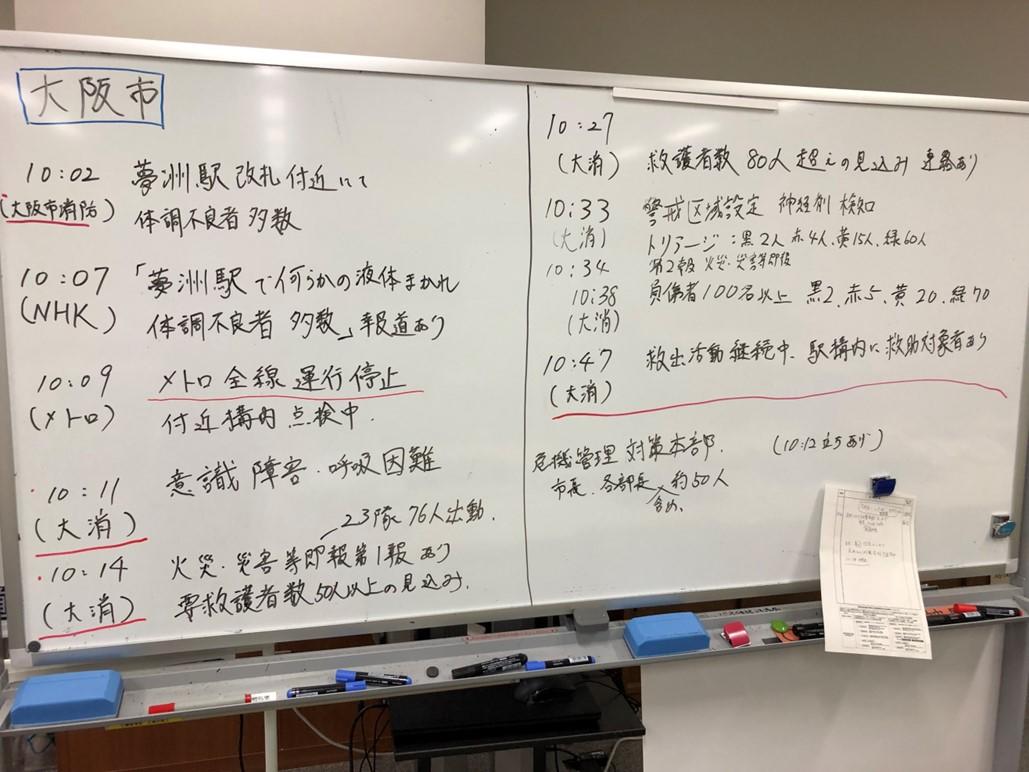 大阪市
10:02 夢洲駅 改札付近にて
(大阪市消防) 体調不良者 多数
10:07 「夢洲駅で何らかの液体まかれ
(NHK) 体調不良者 多数」報道あり
10:09 メトロ 全線 運行停止
(メトロ) 付近構内 点検中.
10:11 意識障害・呼吸困難
(大消) 23隊 76人出動.
10:14 火災・災害等即報第1報 あり
(大消) 要救護者数50人以上の見込み.
10:27
(大消) 救護者数 80人 超えの見込み 連絡あり
10:33 警戒区域設定 神経剤 検知
(大消) トリアージ:黒2人 赤4人、黄15人、緑60人
10:34 第2報 火災・災害等即報
10:38 負傷者100名以上 黒2、赤5、黄20、緑70
(大消)
10:47 救出活動継続中、駅構内に救助対象者あり
(大消)
危機管理 対策本部. (10:12立ちあげ)
市長、各部長 約50人
含め、